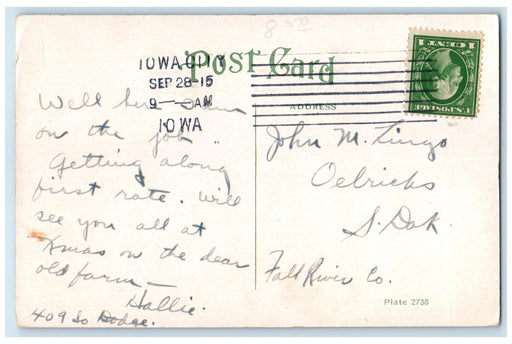 8 50
Post Card
IOWA CITY
SEP 28-15
9 — AM
IOWA
ADDRESS
Well here I am
on the job
Getting along
first rate. Will
see you all at
Xmas on the dear
old farm—
Hallie.
409 So Dodge.
John M. Lingo
Oelrichs
S. Dak.
Fall River Co.
Plate 2738
U.S. POSTAGE
1 CENT 1